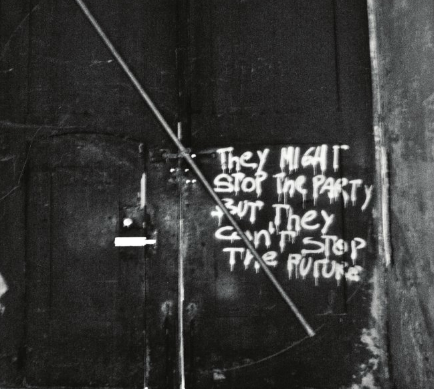 They MIGHT
STOP The PARTY
BUT They
Can'T STOP
The FUTURe